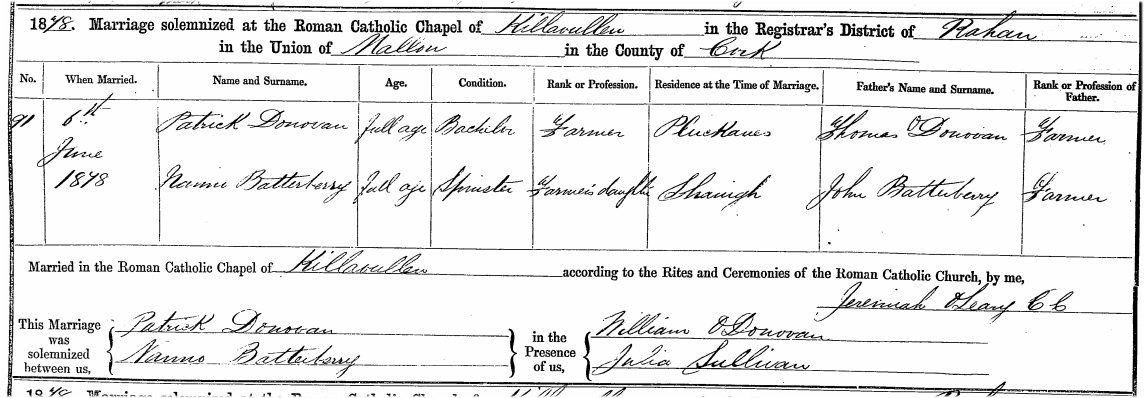 1878. Marriage solemnized at the Roman Catholic Chapel of Killavullen in the Registrar's District of Rahan
in the Union of Mallow in the County of Cork
No. When Married. Name and Surname. Age. Condition. Rank or Profession. Residence at the Time of Marriage. Father's Name and Surname. Rank or Profession of Father.
91 6th Patrick Donovan full age Bachelor Farmer Pluckanes Thomas O'Donovan Farmer
June
1878 Nanno Batterberry full age Spinster Farmer's daughter John Batterberry Farmer
Married in the Roman Catholic Chapel of Killavullen according to the Rites and Ceremonies of the Roman Catholic Church, by me,
Jeremiah O'Leary C C
This Marriage was solemnized between us, Patrick Donovan
Nanno Batterberry
in the Presence of us, William O'Donovan
Julia Sullivan